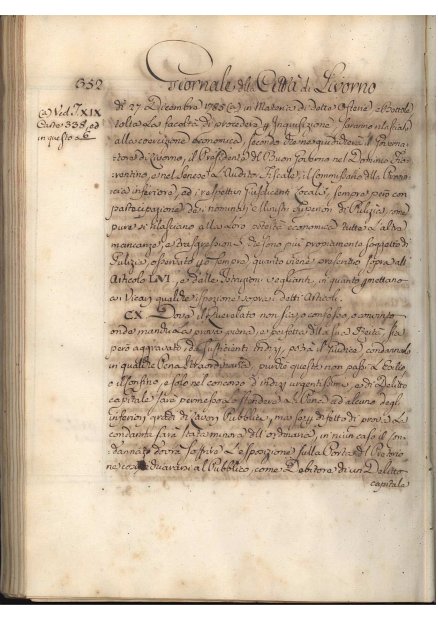 352
Giornale della Città di Livorno
(a) Ved. T. XIX
Carte 338, ed
in questo a
de' 27. Dicembre 1785 (a) in Materia di dette Osterie, e Bettole
tolta Loro facoltà di procedere p Inquisizione, saranno rilasciati
alla coercizione economica, secondo che ne giudicherà il Governa
tore di Livorno, il Presidente del Buon Governo nel Dominio Fio
rentino, e nel Senese l'Auditor Fiscale, il Commissario della Provin
cia inferiore, ed i respettivi Jusdicenti Locali, sempre però con
partecipazione dei nominati Ministri Superiori di Pulizia; come
pure si rilasciano alla loro coerzione economica tutte le altre
mancanze, e trasgressioni, che sono più propriamente soggetto di
Pulizia, osservato p sempre, quanto viene prescritto sopra all'
Articolo LVI. e dalle Istruzioni veglianti, in quanto
ai Vicarj qualche ispezione sopra i detti Articoli.
CX. Dove il Querelato non sia, o confesso, o convinto,
onde manchi la prova piena, e perfetta della sua Reità, sia
però aggravato da sufficienti Indizj, potrà il Giudice condannarlo
in qualche Pena straordinaria, purchè questa non passi l'Esilio,
o il Confino, e solo nel concorso d'indizj urgentissimi, e di Delitto
capitale sarà permesso lo stendere la Pena ad alcuno degli
inferiori gradi di Lavori Pubblici, ma se p difetto di prova la
condanna sarà stata minore dell'ordinario, in niun caso il Con
dannato dovrà soffrire l'esposizione sulla Porta del Pretorio
ne considerarsi al Pubblico, come Debitore di un Delitto
capitale